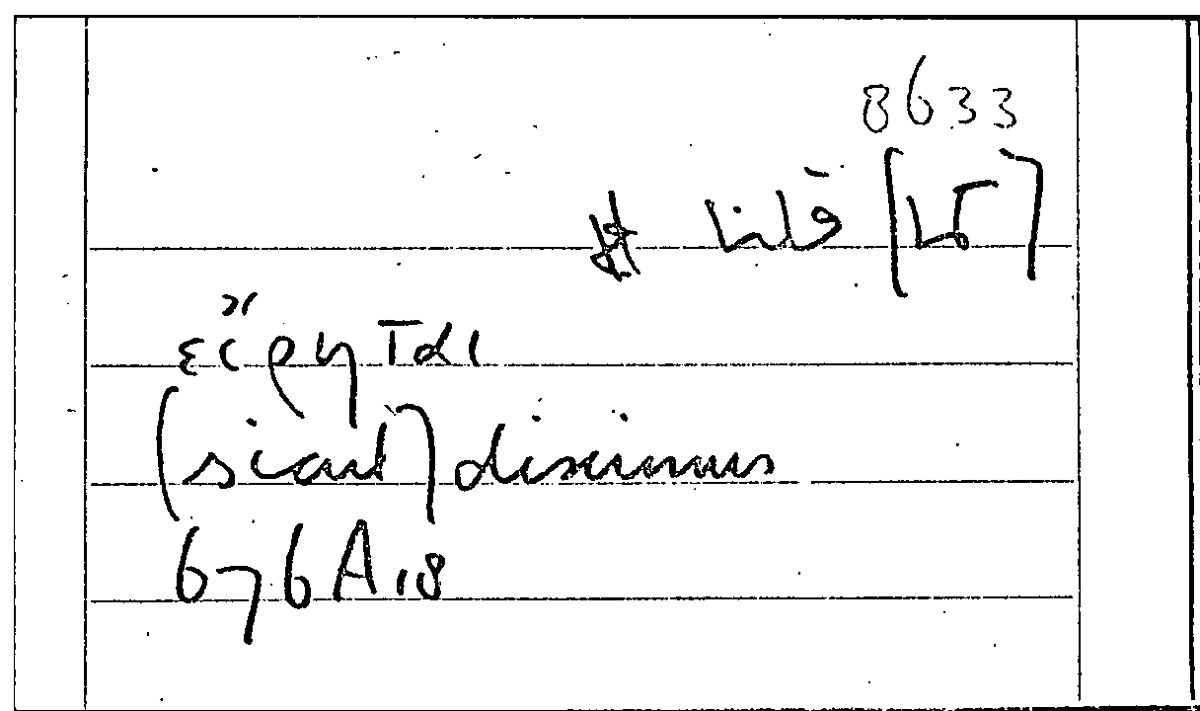 8633
#
εἴρηται
(sicut) diximus
676A18